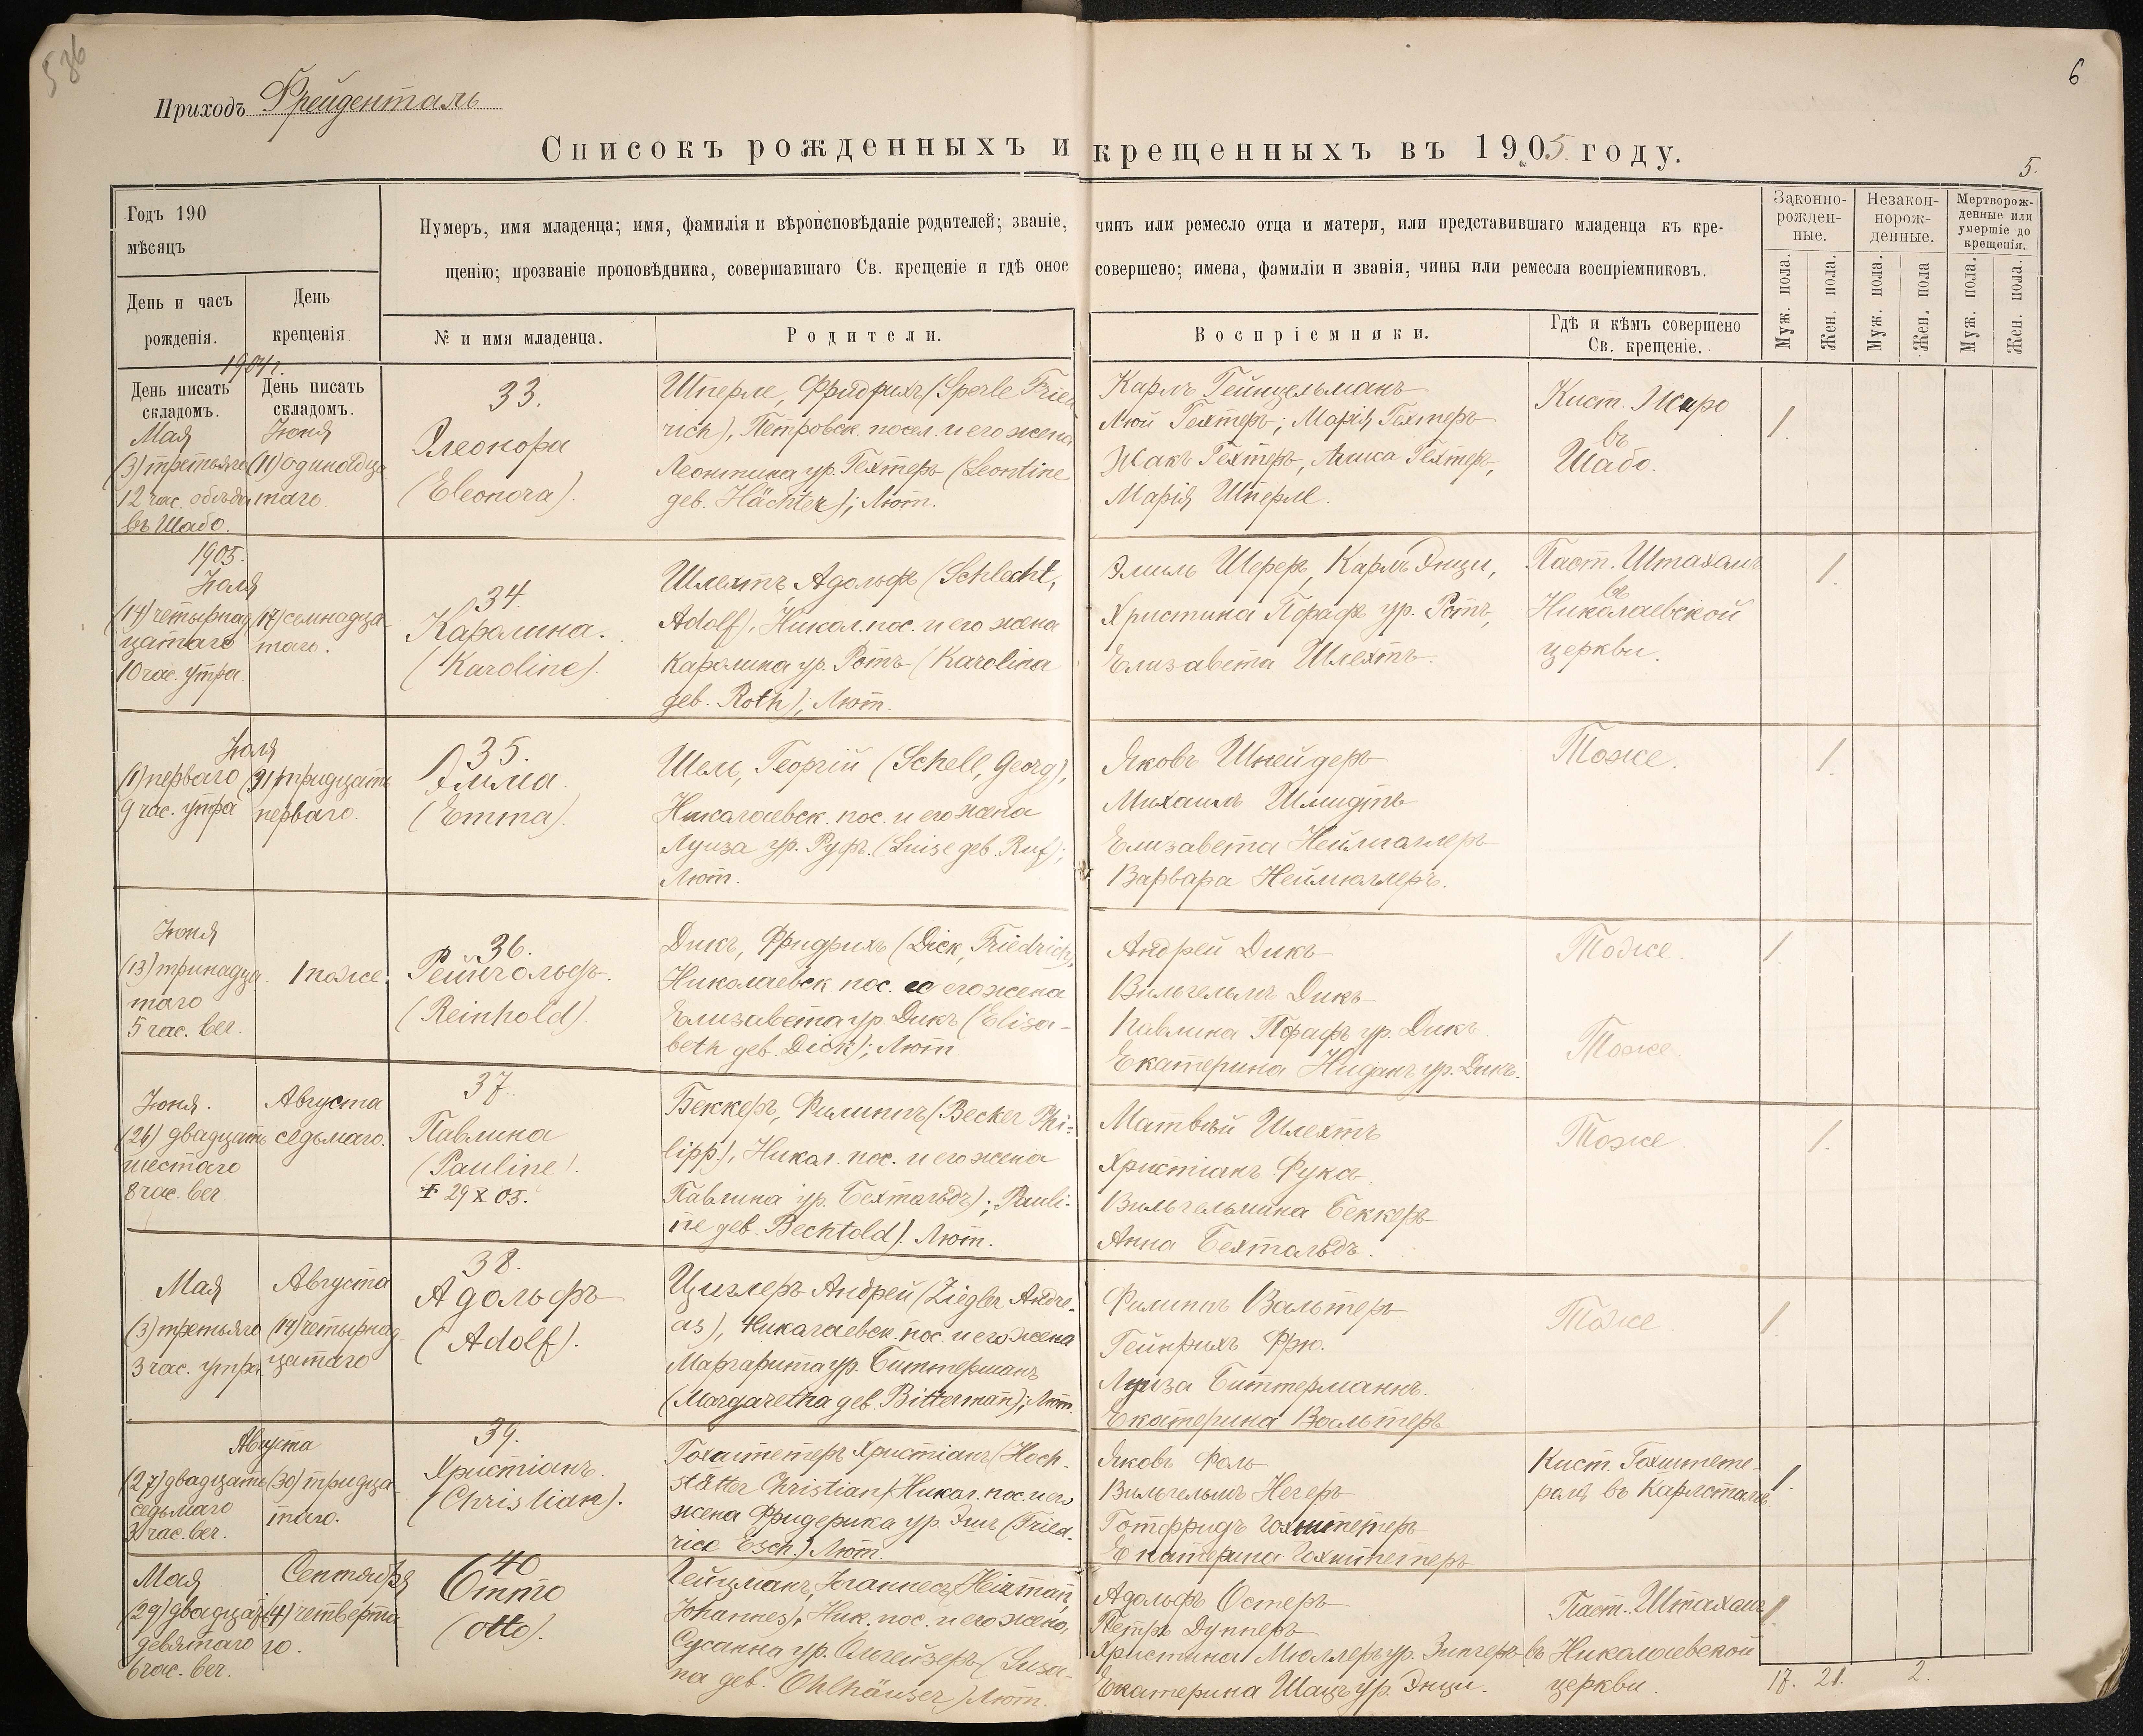 536
6
Приходъ Фрейденталь
Списокъ рожденныхъ и крещенныхъ въ 1905 году.
5.
Годъ 190
мѣсяцъ
Нумеръ, имя младенца; имя, фамилія и вѣроисповѣданіе родителей; званіе, чинъ или ремесло отца и матери, или представившаго младенца къ кре-
щенію; прозваніе проповѣдника, совершавшаго Св. крещеніе и гдѣ оное совершено; имена, фамиліи и званія, чины или ремесла воспріемниковъ.
Законно-
рожден-
ные.
Незакон-
норож-
денные.
Мертворож-
денные или
умершіе до
крещенія.
День и часъ
рожденія.
День
крещенія
№ и имя младенца.
Родители.
Воспріемники.
Гдѣ и кѣмъ совершено
Св. крещеніе.
Муж. пола.
Жен. пола.
Муж. пола.
Жен. пола
Муж. пола.
Жен. пола.
1904 г.
День писать
складомъ.
День писать
складомъ.
Мая
(3) третьяго
12 час. обѣда
въ Шабо.
Іюня
(11) одинадца
таго
33.
Элеонора
(Eleonora).
Шперле, Фридрихъ (Sperle Fried
rich), Петровск. посел. и его жена
Леонтина ур. Гехтеръ (Leontine
geb. Hächter); Лют.
Карлъ Гейнцельманъ
Люи Гехтеръ; Марія Гехтеръ
Жакъ Гехтеръ, Алиса Гехтеръ,
Марія Шперле.
Кист.
въ
Шабо.
1.
1905.
Іюля
(14) четырнад
цатаго
10 час. утра
(17) семнадца
таго.
34.
Каролина.
(Karoline).
Шлехтъ, Адольфъ (Schlecht,
Adolf), Никол. пос. и его жена
Каролина ур. Ротъ (Karolina
geb. Roth); Лют.
Эмиль Шеферъ, Карлъ Энци,
Христина Пфафъ ур. Ротъ,
Елизавета Шлехтъ.
Паст. Штахамъ
въ
Николаевской
церкви.
1.
Іюля
(1) перваго
9 час. утра
(31) тридцать
перваго.
35.
Эмма
(Emma).
Шель, Георгій (Schell, Georg),
Николаевск. пос. и его жена
Луиза ур. Руфъ. (Luise geb. Ruf);
Лют.
Яковъ Шнейдеръ
Михаилъ Шмидтъ
Елизавета Неймиллеръ
Варвара Неймюллеръ.
Тоже.
1.
Іюня
(13) тринадца-
таго
5 час. веч.
тоже.
36.
Рейнгольдъ.
(Reinhold).
Дикъ, Фридрихъ (Dick, Friedrich),
Николаевск. пос. и его жена
Елизавета ур. Дикъ (Elisa-
beth geb. Dick); Лют.
Андрей Дикъ
Вильгельмъ Дикъ
Павлина Пфафъ ур. Дикъ
Екатерина Ниданъ ур. Дикъ.
Тоже.
Тоже.
1.
Іюня.
(26) двадцать
шестаго
8 час. веч.
Августа
седьмаго.
37.
Павлина
(Pauline).
+ 29 X 05.
Беккеръ, Филиппъ (Becker Phi-
lipp), Никол. пос. и его жена
Павлина ур. Бехтольдъ); Pauli-
ne geb. Bechtold). Лют.
Матвѣй Шлехтъ
Христіанъ Фукъ
Вильгельмина Беккеръ
Анна Бехтольдъ.
Тоже.
1.
Мая
(3) третьяго
3 час. утра.
Августа
(14) четырнад
цатаго
38.
Адольфъ
(Adolf).
Циглеръ Андрей (Ziegler Andre-
as), Николаевск. пос. и его жена
Маргарита ур. Биттерманъ
(Margaretha geb. Bitterman̄); Лют.
Филиппъ Вальтеръ
Гейнрихъ Фрю.
Луиза Биттерманнъ.
Екатерина Вальтеръ
Тоже
1.
Августа
(27) двадцать
седьмаго
час. веч.
(30) тридца-
таго.
39.
Христіанъ.
(Christian).
Гохштетеръ Христіанъ (Hoch-
stätter Christian) Никол. пос. и его
жена Фридерика ур. Эшъ (Fried-
rice Esch.) Лют.
Яковъ Фоль
Вильгельмъ Негеръ
Готфридъ Гохштетеръ
Екатерина Гохштетеръ
Кист. Гохштете-
ромъ въ Карлсталѣ.
1.
Мая
(29) двадцать
девятаго
6 час. веч.
Сентября
(4) четверта
го.
40
Отто
(Otto).
Гейцманъ, Іоганнесъ (Heizman̄,
Johannes), Ник. пос. и его жена,
Сусанна ур. Ольгейзеръ (Susa-
na geb. Ohlhäuser) Лют.
Адольфъ Остеръ
Петръ Дупперъ
Христина Мюллеръ ур. Зингеръ
Екатерина Шацъ ур. Энци.
Паст. Штахамъ
въ Николаевской
церкви.
1.
17. 21. 2.